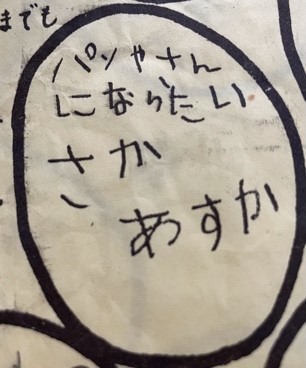 までも
パンやさん
になりたい
さか
あすか